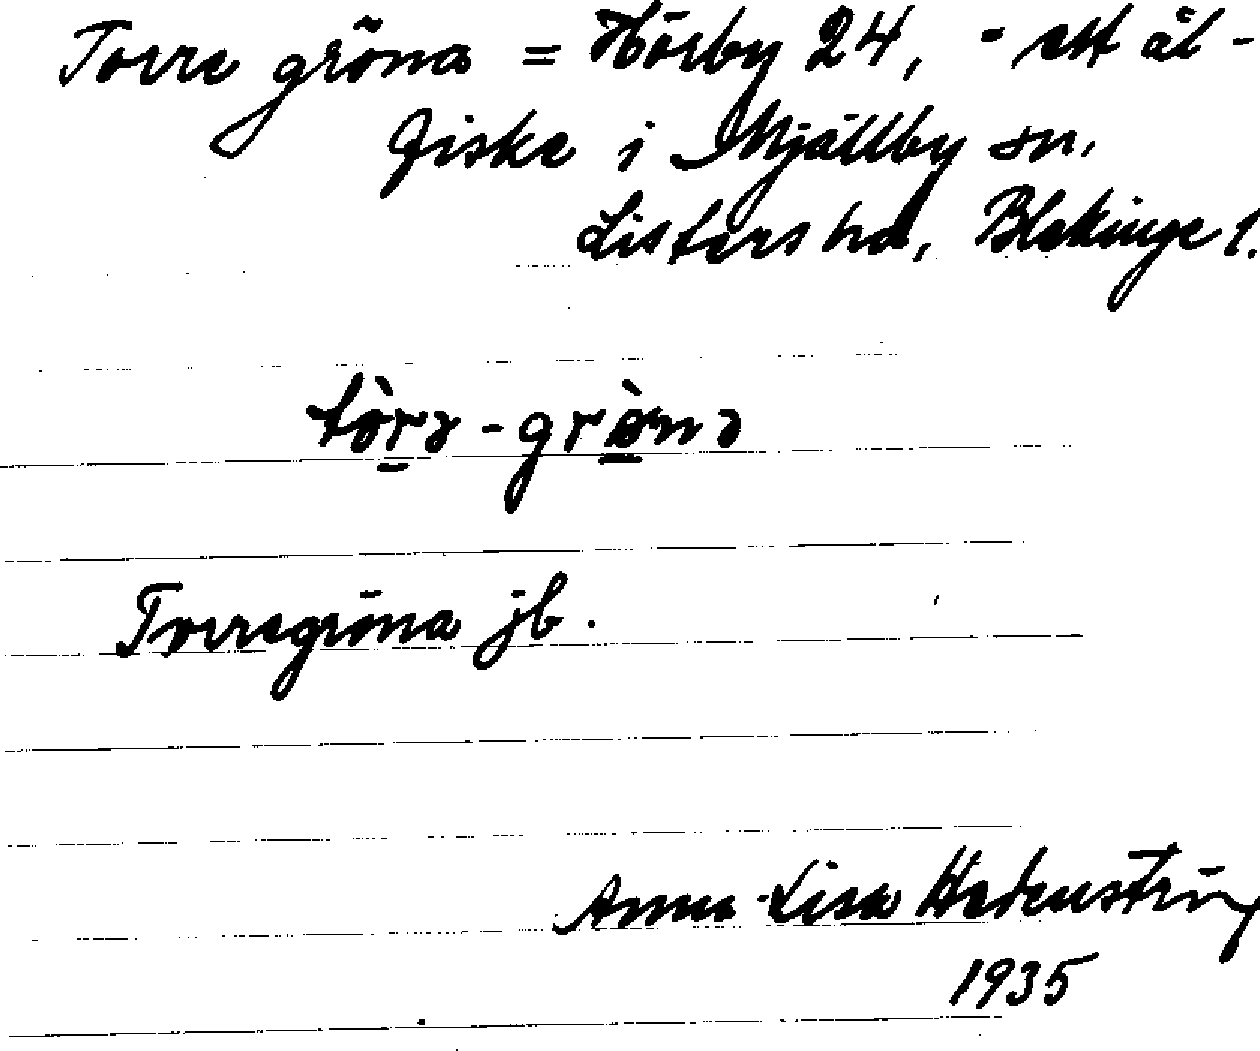 Torre gröna = Hörby 24, - ett ål-
fiske i Mjällby sn.
Listers hd, Blekinge l.
tòrə - grø̀nə
Torregröna jb.
Anna-Lisa Hedenström
1935